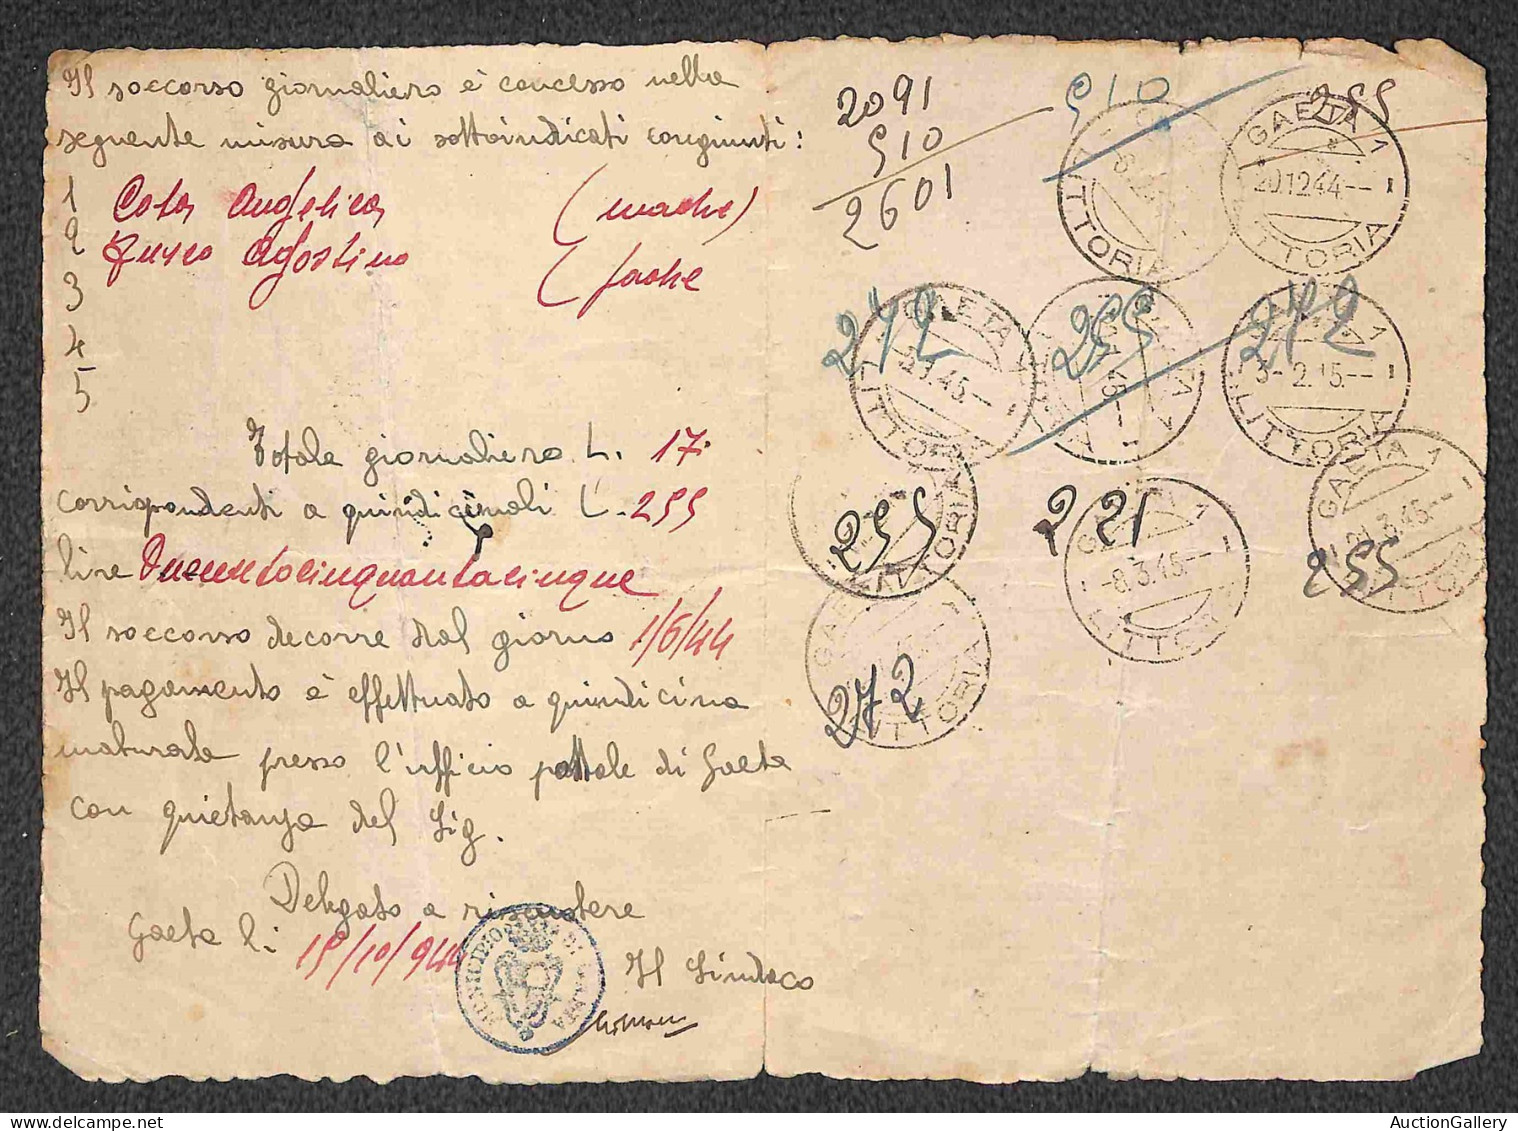 Il soccorso giornaliero è concesso nella
seguente misura ai sottoindicati congiunti:
1 Angelica (madre)
2 Agostino (padre
3
4
5
Totale giornaliero L. 17.
corrispondenti a quindicinali L. 255
lire Duecentocinquantacinque
Il soccorso decorre dal giorno 1/6/44
Il pagamento è effettuato a quindicina
maturata presso l'ufficio postale di Gaeta
con quietanza del Sig.
Delegato a riscuotere
Gaeta li 15/10/944
Il Sindaco
MUNICIPIO DI GAETA
2091
510
2601
510
255
GAETA 1
20.12.44
LITTORIA
LITTORIA
272
GAETA
1.45
LITTORIA
255
272
3-2.45
LITTORIA
255
LITTORIA
221
-8.3.45
LITTORIA
GAETA 1
21.3.45
255
GAETA
272
LITTORIA
AuctionGallery